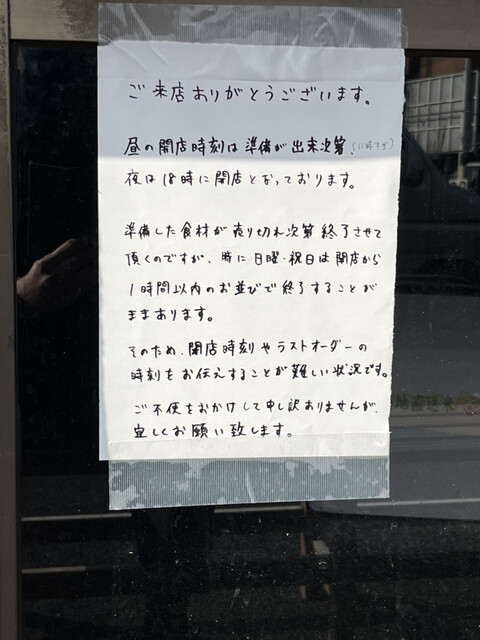 ご来店ありがとうございます。
昼の開店時刻は準備が出来次第、(11時すぎ)
夜は18時に開店となっております。
準備した食材が売り切れ次第終了させて
頂くのですが、特に日曜・祝日は開店から
1時間以内のお並びで終了することが
ままあります。
そのため、閉店時刻やラストオーダーの
時刻をお伝えすることが難しい状況です。
ご不便をおかけして申し訳ありませんが、
宜しくお願い致します。
地直送来